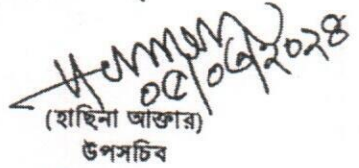 ০৫/০৫/২০২৪
(হাছিনা আক্তার)
উপসচিব